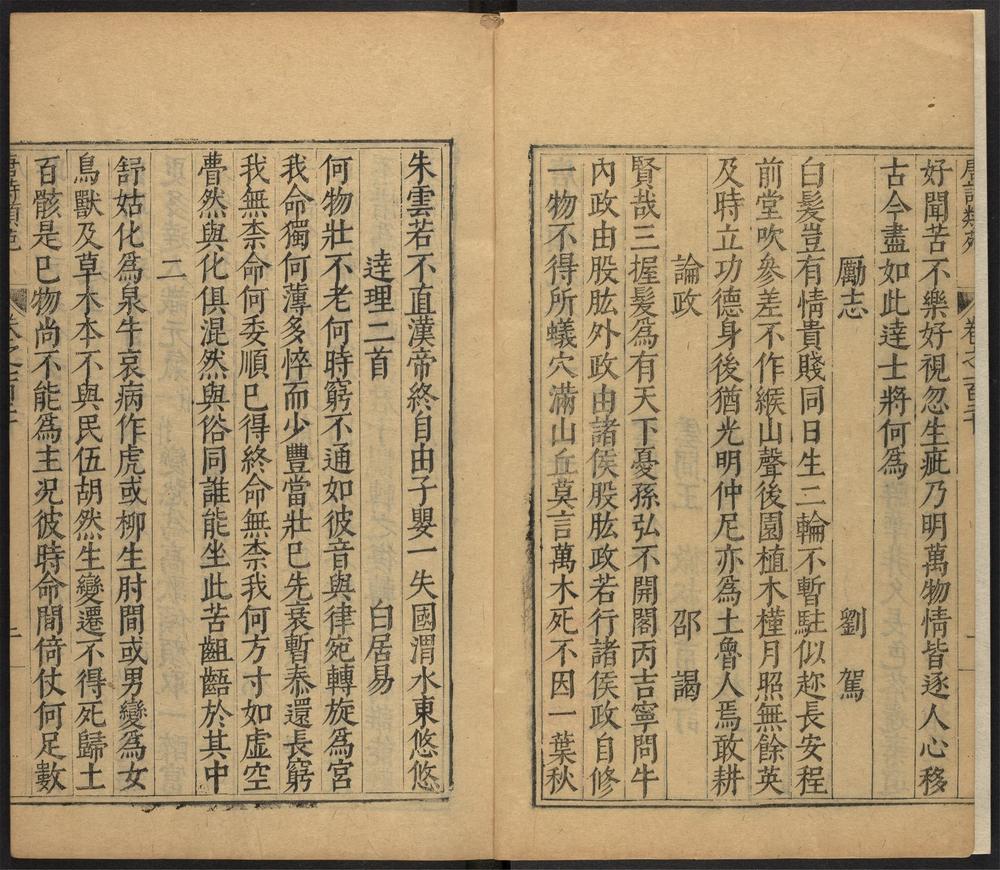 唐詩類苑 卷之一百
好聞苦不樂好視忽生疵乃明萬物情皆逐人心移
古今盡如此達士將何爲
勵志 劉駕
白髮豈有情貴賤同日生二輪不暫駐似趂長安程
前堂吹參差不作緱山聲後園植木槿月照無餘英
及時立功德身後猶光明仲尼亦爲土魯人焉敢耕
論政 邵謁
賢哉三握髮爲有天下憂孫弘不開閣丙吉寧問牛
內政由股肱外政由諸侯股肱政若行諸侯政自修
一物不得所蟻穴滿山丘莫言萬木死不因一葉秋
朱雲若不直漢帝終自由子嬰一失國渭水東悠悠
達理二首 白居易
何物壯不老何時窮不通如彼音與律宛轉旋爲宮
我命獨何薄多悴而少豐當壯已先衰暫泰還長窮
我無柰命何委順已得終命無柰我何方寸如虛空
瞢然與化俱混然與俗同誰能坐此苦齟齬於其中
二
舒姑化爲泉牛哀病作虎或柳生肘間或男變爲女
鳥獸及草木本不與民伍胡然生變遷不得死歸土
百骸是已物尚不能爲主况彼時命間倚仗何足數
唐詩類苑 卷之一百 二